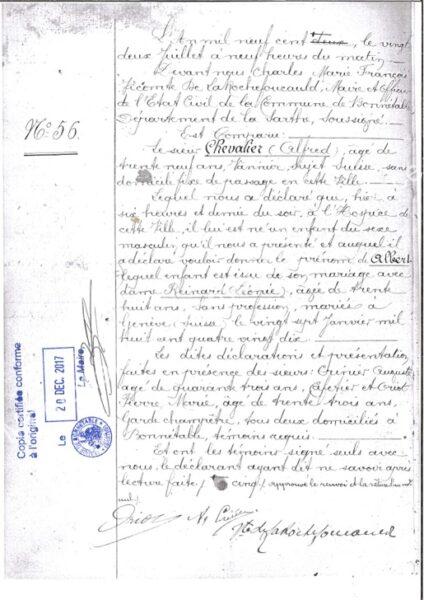 L'An mil neuf cent deux, le vingt
deux Juillet à neuf heures du matin
Devant nous Charles Marie François
Vicomte De LaRochefoucauld, Maire et Officier
de l'Etat Civil de la Commune de Bonnétable
Département de la Sarthe, soussigné.
N° 56.
Est Comparu:
Le sieur Chevalier (Alfred), âgé de
trente neuf ans, Vannier, sujet Suisse, sans
domicile fixe de passage en cette Ville.
Lequel nous a déclaré que, hier à
six heures et demie du soir, à l'Hospice de
cette Ville, il lui est né un enfant du sexe
masculin, qu'il nous a présenté et auquel il
a déclaré vouloir donner le prénom de Albert
lequel enfant est issu de son mariage avec
dame Reinard (Léonie), âgée de trente
huit ans, sans profession, mariés à
Genève (Suisse) le vingt sept Janvier mil
huit cent quatre vingt dix.
Les dites déclarations et présentation
faites en présence des sieurs: Auguste
âgé de quarante trois ans, Cafetier et
Pierre Marie, âgé de trente trois ans,
Garde champêtre, tous deux domiciliés à
Bonnétable, témoins requis.
Et ont les témoins signé seuls avec
nous, le déclarant ayant dit ne savoir après
lecture faite / cinq / approuvé le renvoi et la rature d'un mot
nul /
Copie certifiée conforme
à l'original
Le 20 DEC. 2017
Le Maire,